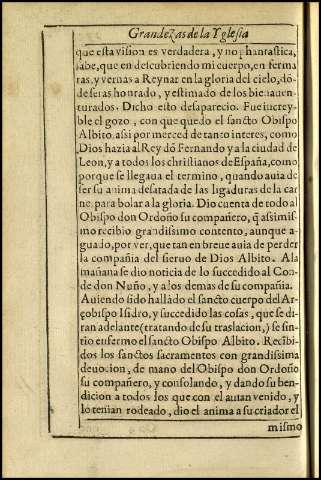 Grandezas de la Yglesia
que esta vision es verdadera, y no phantastica,
sabe, que en descubriendo mi cuerpo, en ferma
ras, y vernas a Reynar en la gloria del cielo, dõ-
de seras honrado, y estimado de los bienauen-
turados. Dicho esto desaparecio. Fue increy-
ble el gozo, con que quedo el sancto Obispo
Albito. assi por merced de tanto interes, como
Dios hazia al Rey dõ Fernando y a la ciudad de
Leon, y a todos los christianos de España, como
porque se llegaua el termino, quando auia de
ser su anima desatada de las ligaduras de la car
ne, para bolar a la gloria. Dio cuenta de todo al
Obispo don Ordoño su compañero, q̃ assimis-
mo recibio grandissimo contento, aunque a-
guado, por ver, que tan en breue auia de perder
la compañia del sieruo de Dios Albito. A la
mañana se dio noticia de lo succedido al Con-
de don Nuño, y a los demas de su compañia.
Auiendo sido hallado el sancto cuerpo del Ar-
çobispo Isidro, y succedido las cosas, que se di-
ran adelante (tratando de su traslacion,) se sin-
tio enfermo el sancto Obispo Albito. Recibi-
dos los sanctos sacramentos con grandissima
deuocion, de mano del Obispo don Ordoño
su compañero, y consolando, y dando su ben-
dicion a todos los que con el auian venido, y
lo tenian rodeado, dio el anima a su criador el
mismo